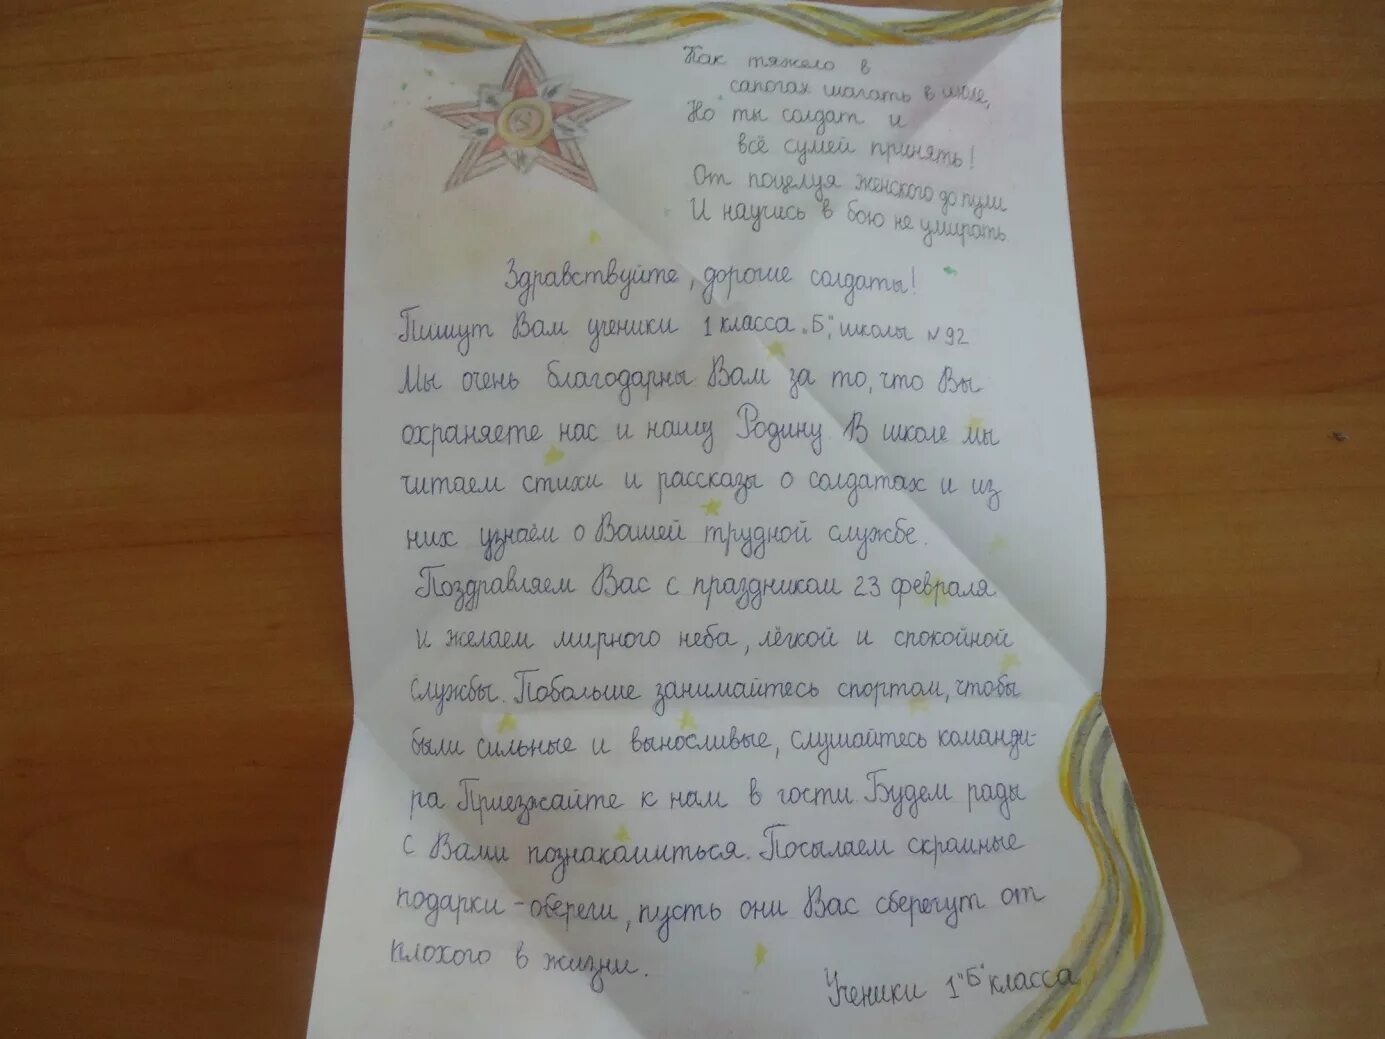 Как тяжело в
сапогах шагать в июле,
Но ты солдат и
всё сумей принять!
От поцелуя женского до пули
И научись в бою не умирать
Здравствуйте, дорогие солдаты!
Пишут Вам ученики 1 класса „Б“, школы №92
Мы очень благодарны Вам за то, что Вы
охраняете нас и нашу Родину. В школе мы
читаем стихи и рассказы о солдатах и из
них узнаём о Вашей трудной службе.
Поздравляем Вас с праздником 23 февраля
и желаем мирного неба, лёгкой и спокойной
службы. Побольше занимайтесь спортом, чтобы
были сильные и выносливые, слушайтесь команди-
ра. Приезжайте к нам в гости. Будем рады
с Вами познакомиться. Посылаем скромные
подарки - обереги, пусть они Вас сберегут от
плохого в жизни.
Ученики 1 "Б" класса